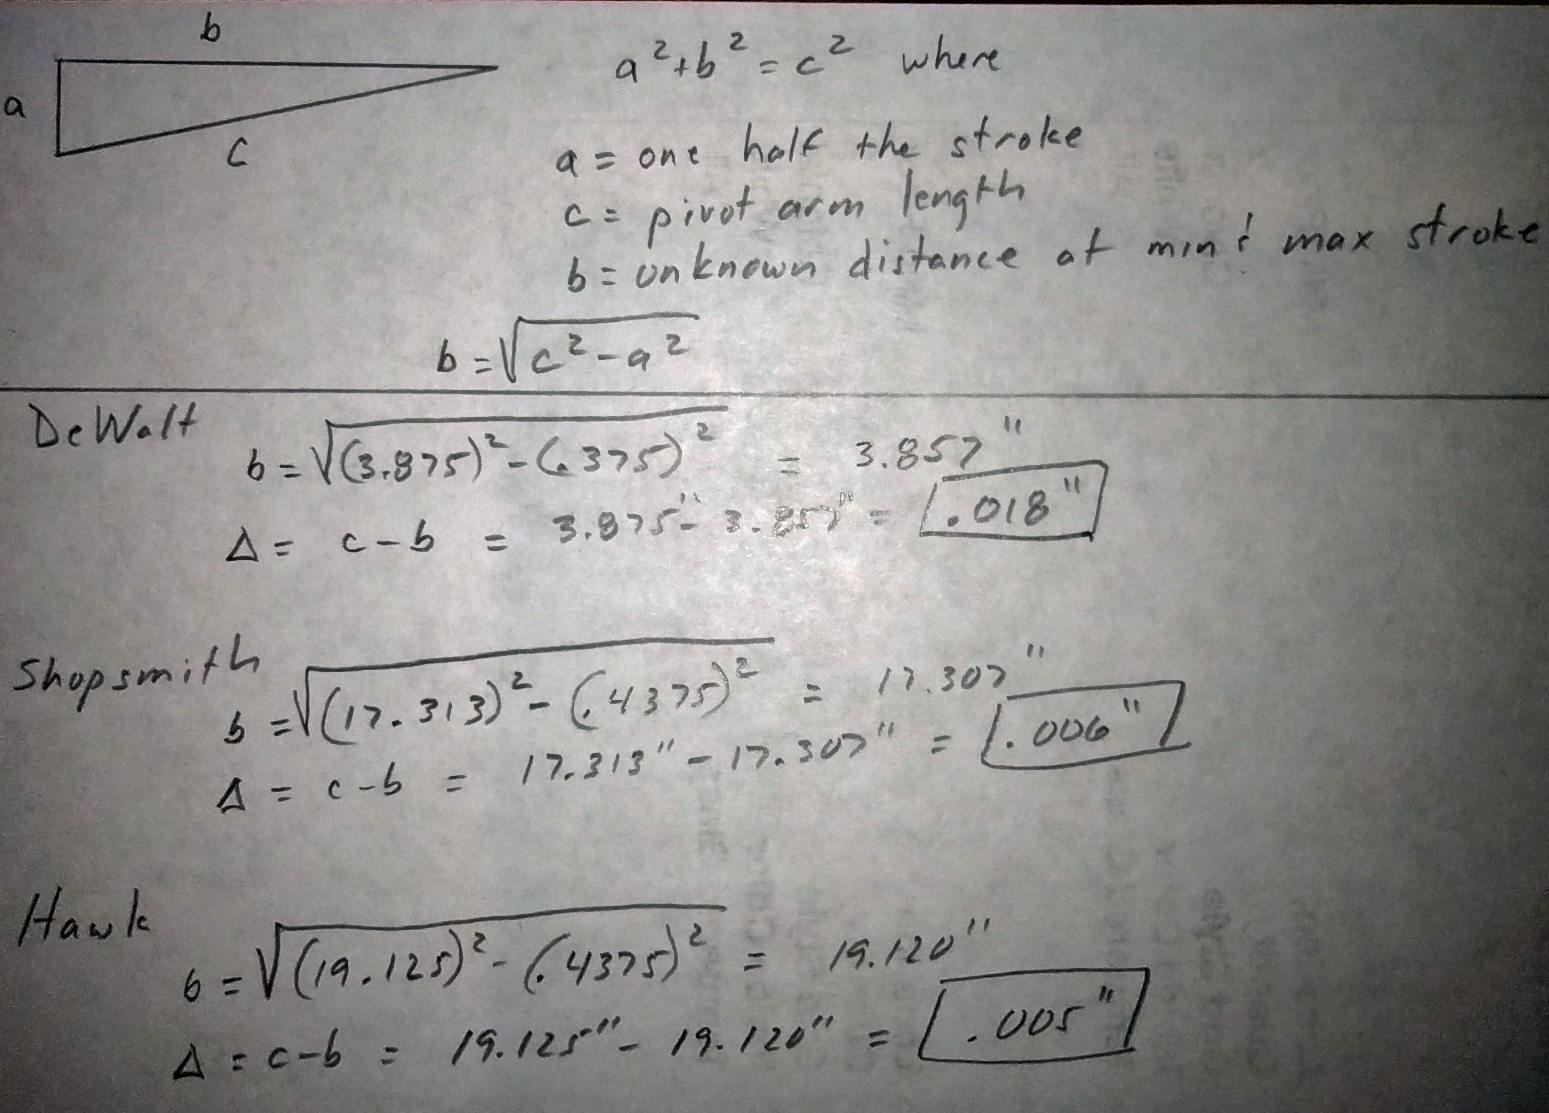 b
a
c
a²+b²=c² where
a = one half the stroke
c = pivot arm length
b = unknown distance at min & max stroke
b=√(c²-a²)
DeWalt
b=√((3.875)²-(.375)²) = 3.857"
Δ= c-b = 3.875"- 3.857" = .018"
Shopsmith
b =√((17.313)²- (.4375)²) = 17.307"
Δ = c-b = 17.313" - 17.307" = .006"
Hawk
b=√((19.125)²-(.4375)²) = 19.120"
Δ = c-b = 19.125"- 19.120" = .005"